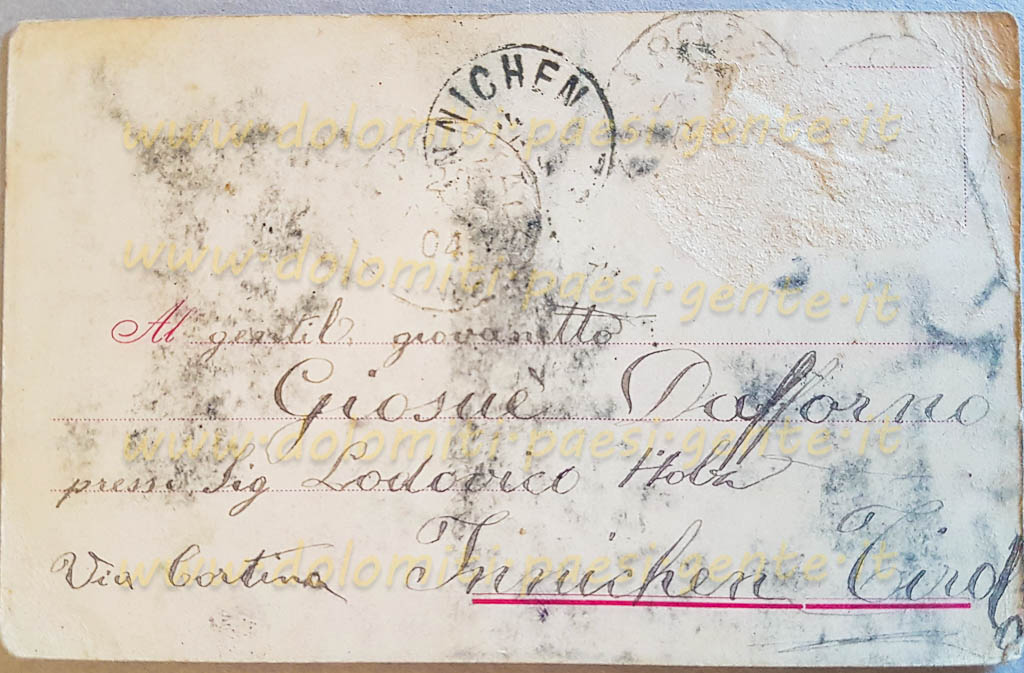 INNICHEN
04
www.dolomiti-paesi-gente.it
www.dolomiti-paesi-gente.it
Al gentil giovanetto
Giosuè Dafforno
www.dolomiti-paesi-gente.it
presso Sig Lodovico Holz
Via Cortina Innichen Tirol
www.dolomiti-paesi-gente.it